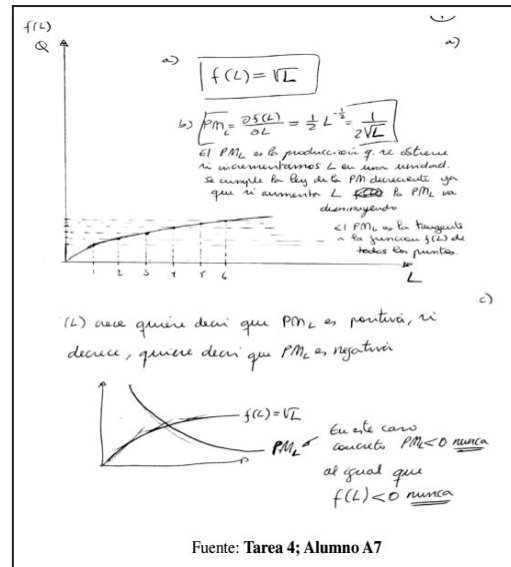 f(L)
Q
a)
a) f(L) = √L
b) PM_L = ∂f(L)/∂L = 1/2 L^(-1/2) = 1/(2√L)
El PM_L es la producción q. se obtiene
si incrementamos L en una unidad.
Se cumple la ley de la PM decreciente ya
que si aumenta L la PM_L va
disminuyendo
El PM_L es la tangente
a la función f(L) de
todos los puntos.
1 2 3 4 5 6
L
c)
(L) crece quiere decir que PM_L es positiva, si
decrece, quiere decir que PM_L es negativa
f(L) = √L
PM_L
En este caso
concreto PM_L < 0 nunca
al igual que
f(L) < 0 nunca
Fuente: Tarea 4; Alumno A7